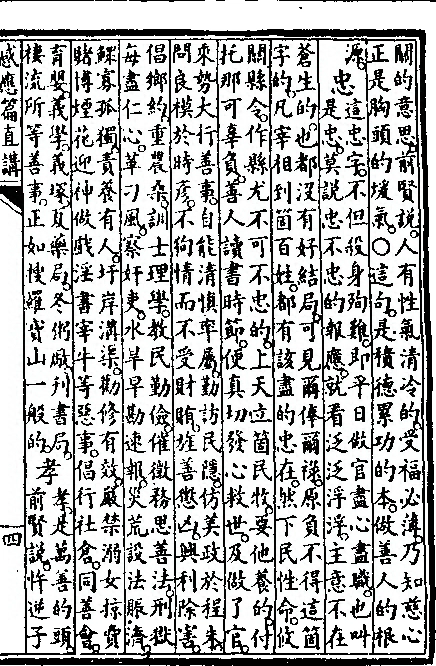 關的意思前賢說人有性氣清冷的受福必薄乃知慈心
正是胸頭的煖氣〇這句是積德累功的本做善人的根
源 忠 這忠字不但殺身殉難即平日做官盡心盡職也叫
是忠莫說忠不忠的報應就看泛泛浮浮主意不在
蒼生的也都沒有好結局可見爾俸爾祿原負不得這箇
字的凡宰相到箇百姓都有該盡的忠在然下民性命攸
關縣令作縣尤不可不忠的上天立箇民牧要他養的付
托那可辜負善人讀書時節便真切發心救世及做了官
來勢大行善事自能清慎率屬勤訪民隱仿美政於程朱
問良模於時彥不徇情而不受財賄旌善懲凶興利除害
倡鄉約重農桑訓士理學教民勤儉催徵務思善法刑獄
每盡仁心革刁風察奸吏水旱早勘速報災荒設法賑濟
鰥寡孤獨責養有人圩岸溝渠勸修有效嚴禁溺女掠賣
賭博煙花迎神做戲淫書宰牛等惡事倡行社倉同善會
育嬰義學義塚夏藥局冬粥廠刊書局
棲流所等善事正如搜羅寶山一般的 孝 孝是萬善的頭
前賢說忤逆子
感應篇直講
四